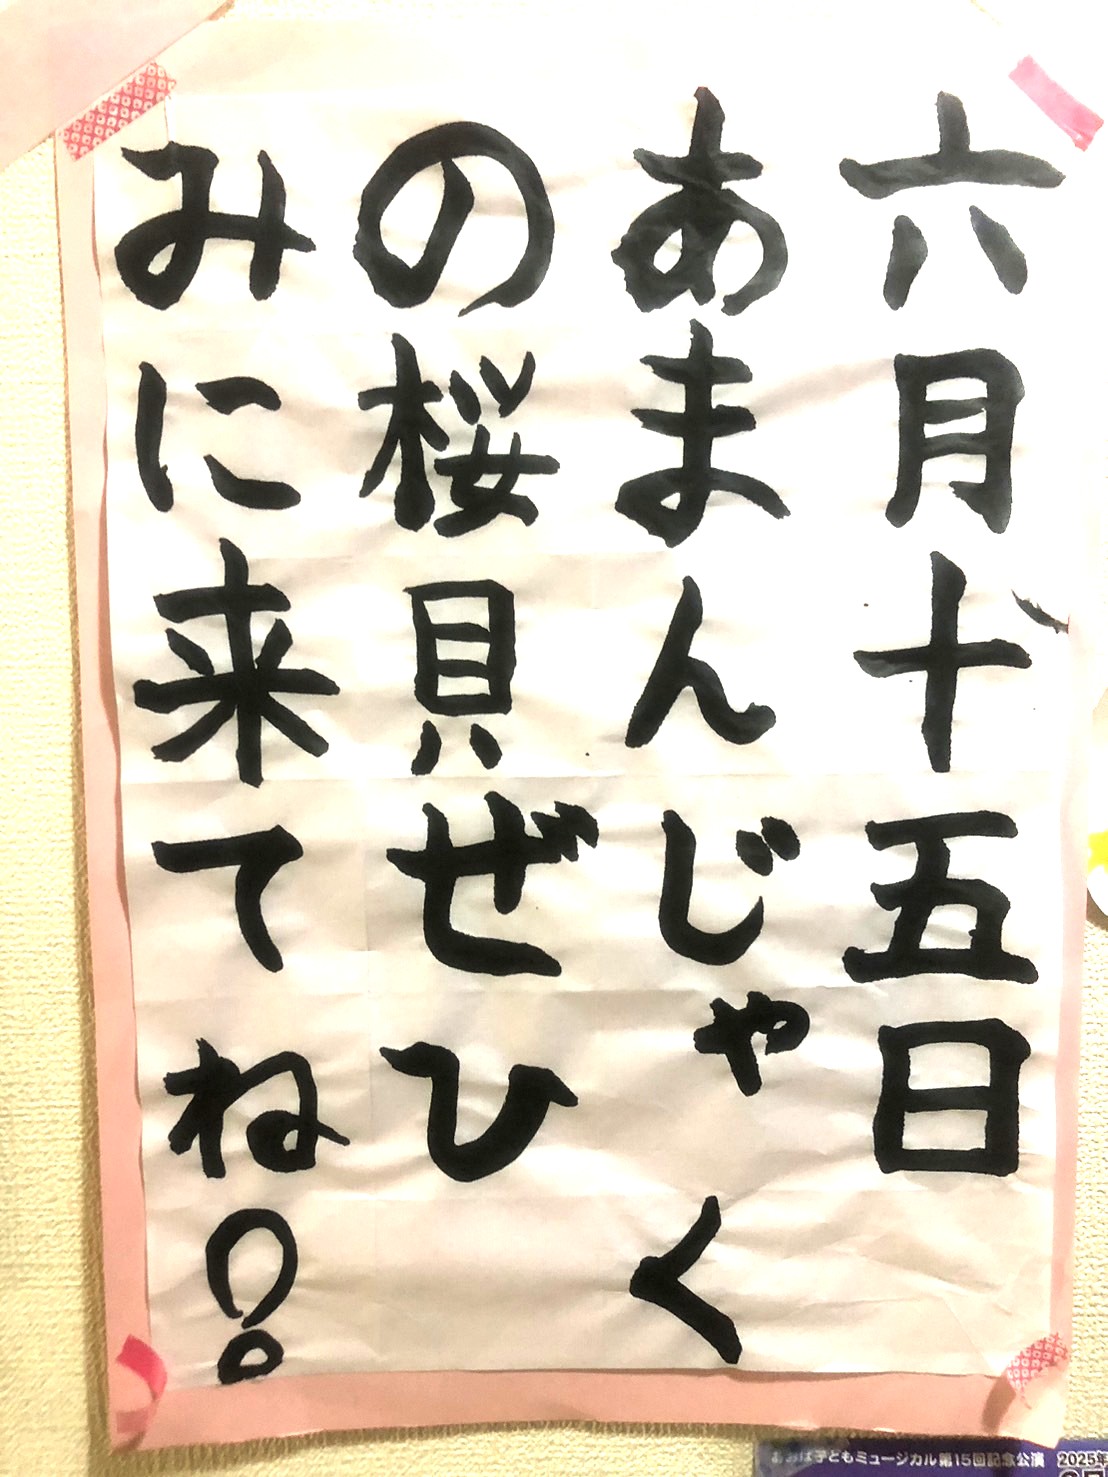 六月十五日
あまんじゃく
の桜貝ぜひ
みに来てね!
子どもミュージカル第15回記念公演 2025年